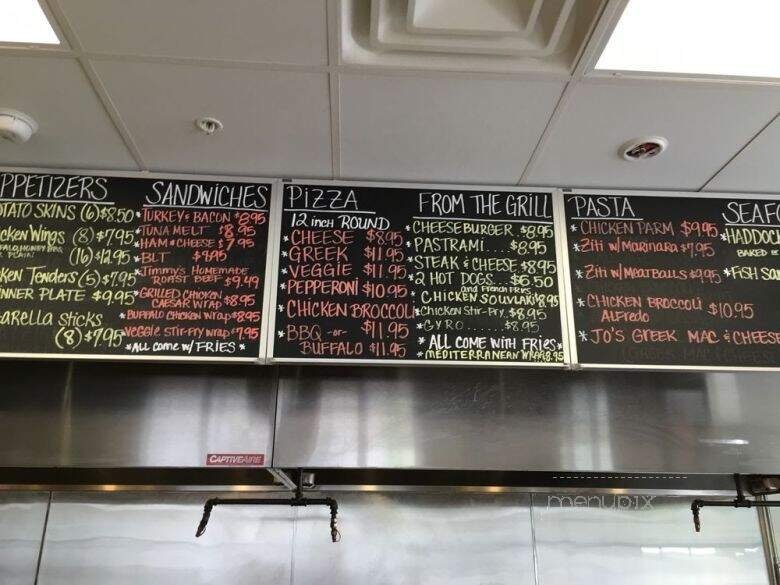 PPETIZERS
TATO SKINS (6) $8.50
cken Wings (8) $7.95
(16) $12.95
cken Tenders (5) $7.95
NNER PLATE $9.95
arella sticks
(8) $7.95
SANDWICHES
* TURKEY & BACON $8.95
TUNA MELT $8.95
* HAM & CHEESE $7.95
BLT $7.95
* Timmy's Homemade
ROAST BEEF $9.49
* GRILLED CHICKEN
CAESAR WRAP $8.95
* BUFFALO CHICKEN WRAP $8.95
* Veggie Stir-Fry Wrap $7.95
* ALL come w/ FRIES *
PIZZA
12 inch ROUND
* CHEESE $8.95
* GREEK $11.95
* VEGGIE $11.95
* PEPPERONI $10.95
* CHICKEN BROCCOLI
$11.95
* BBQ -or-
BUFFALO $11.95
FROM THE GRILL
* CHEESEBURGER $8.95
* PASTRAMI.... $8.95
* STEAK & CHEESE $8.95
* 2 HOT DOGS... $6.50
and French Fries
* CHICKEN SOUVLAKI $8.95
* Chicken Stir-Fry. $8.95
* GYRO....... $8.95
* ALL COME WITH FRIES *
* MEDITERRANEAN WRAP $8.95
PASTA
* CHICKEN PARM $9.95
* Ziti w/ Marinara $7.95
* Ziti w/ MeatBalls $9.95
* CHICKEN BROCCOLI
ALFREDO $10.95
* JO'S GREEK MAC & CHEESE
SEAFO
* HADDOCK
BAKED or
* FISH Sa
CAPTIVEAIRE
menupix